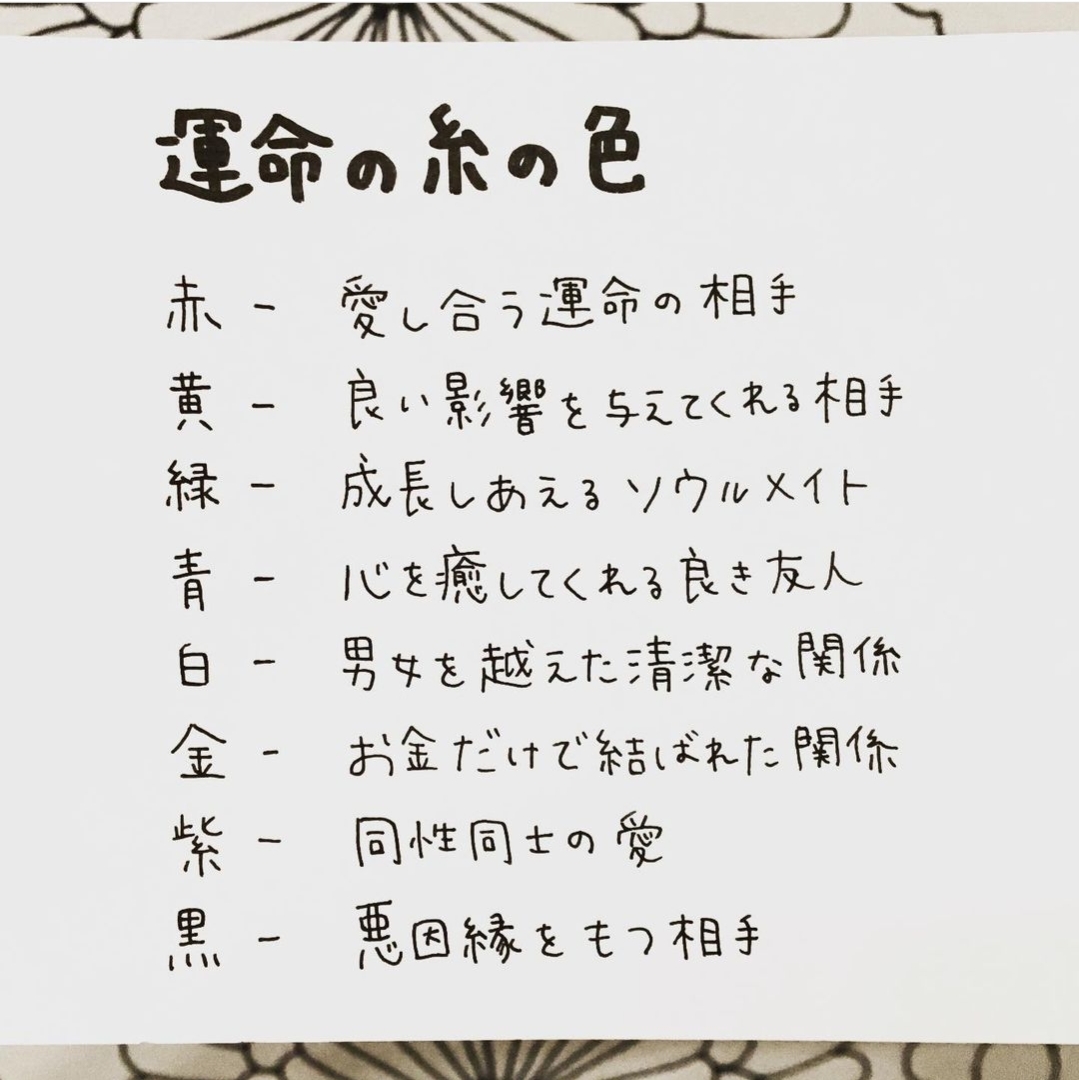 運命の糸の色
赤 - 愛し合う運命の相手
黄 - 良い影響を与えてくれる相手
緑 - 成長しあえるソウルメイト
青 - 心を癒してくれる良き友人
白 - 男女を越えた清潔な関係
金 - お金だけで結ばれた関係
紫 - 同性同士の愛
黒 - 悪因縁をもつ相手